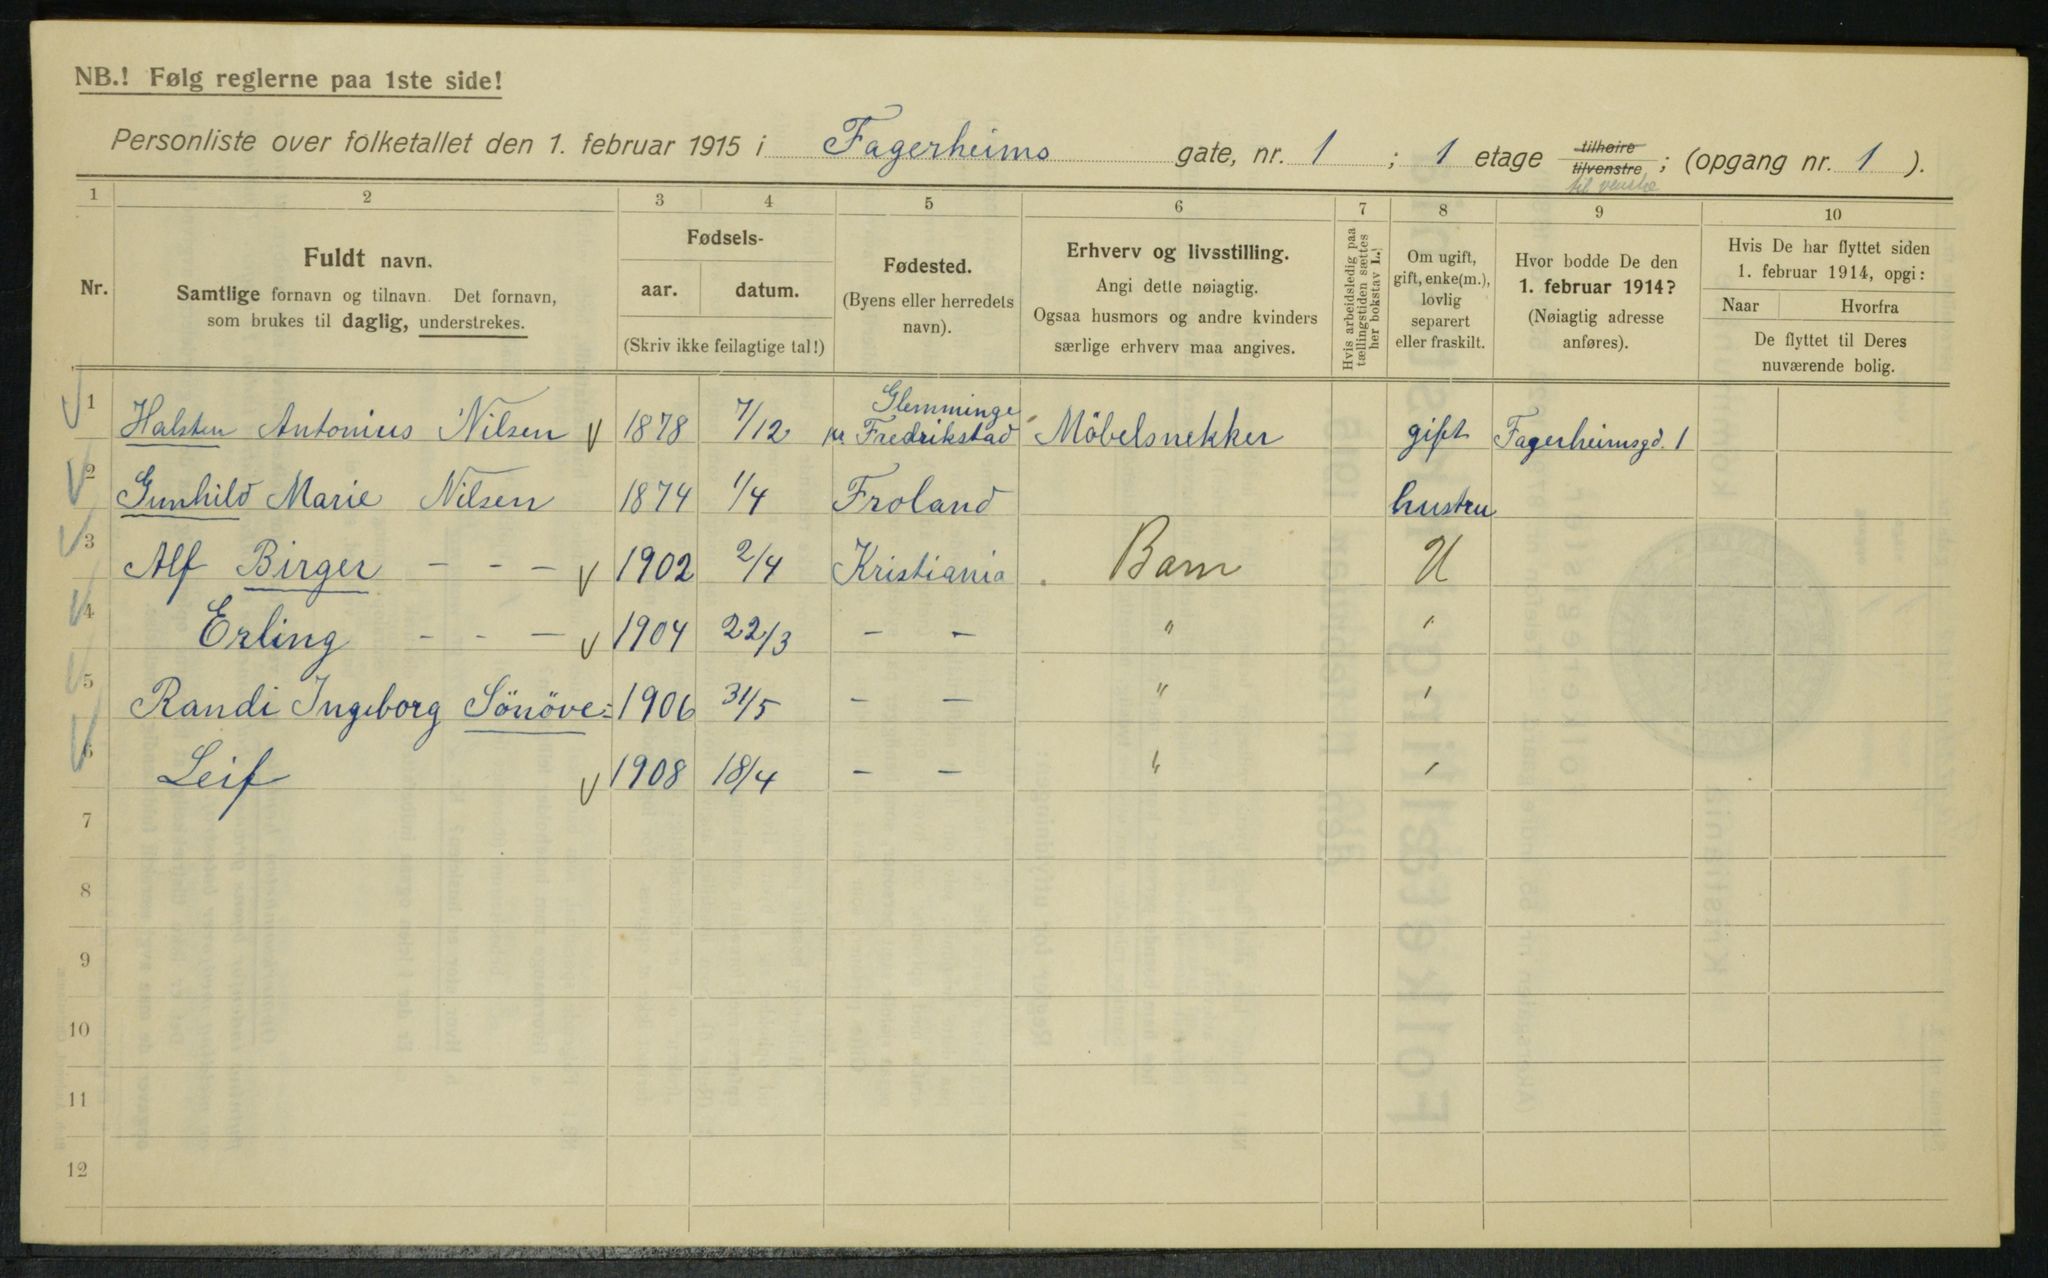 NB.! Følg reglerne paa 1ste side!
Personliste over folketallet den 1. februar 1915 i Fagerheims gate, nr. 1 ; 1 etage tilhøire tilvenstre ; (opgang nr. 1 ).
til venstre
1 2 3 4 5 6 7 8 9 10
Nr.
Fuldt navn.
Samtlige fornavn og tilnavn. Det fornavn,
som brukes til daglig, understrekes.
Fødsels-
aar. datum.
(Skriv ikke feilagtige tal!)
Fødested.
(Byens eller herredets
navn).
Erhverv og livsstilling.
Angi dette nøiagtig.
Ogsaa husmors og andre kvinders
særlige erhverv maa angives.
Hvis arbeidsledig paa
tællingstiden sættes
her bokstav L.
Om ugift,
gift, enke(m.),
lovlig
separert
eller fraskilt.
Hvor bodde De den
1. februar 1914?
(Nøiagtig adresse
anføres).
Hvis De har flyttet siden
1. februar 1914, opgi:
Naar Hvorfra
De flyttet til Deres
nuværende bolig.
Glemminge
1 Halsten Antonius Nilsen 1878 7/12 pr Fredrikstad Möbelsnekker gift Fagerheimsgd. 1
2 Gunhild Marie Nilsen 1874 1/4 Froland hustru
3 Alf Birger - - - 1902 2/4 Kristiania Barn U
4 Erling - - - 1904 22/3 - - " "
5 Randi Ingeborg Sönöve = 1906 31/5 - - " "
6 Leif 1908 18/4 - - " "
7
8
9
10
11
12